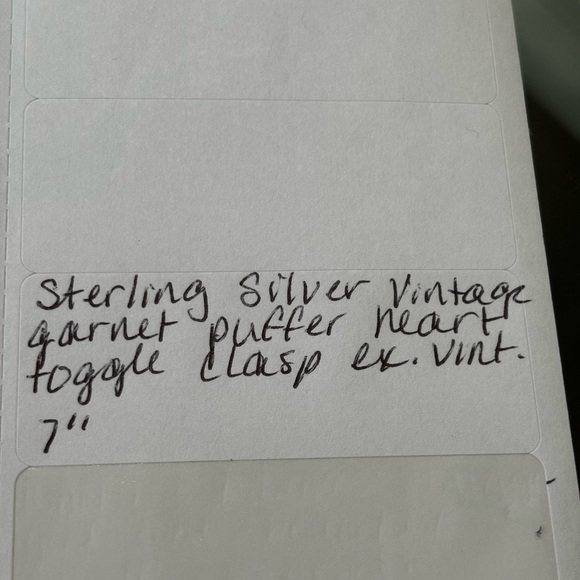 Sterling Silver Vintage
garnet puffer heart
toggle clasp ex. vint.
7"